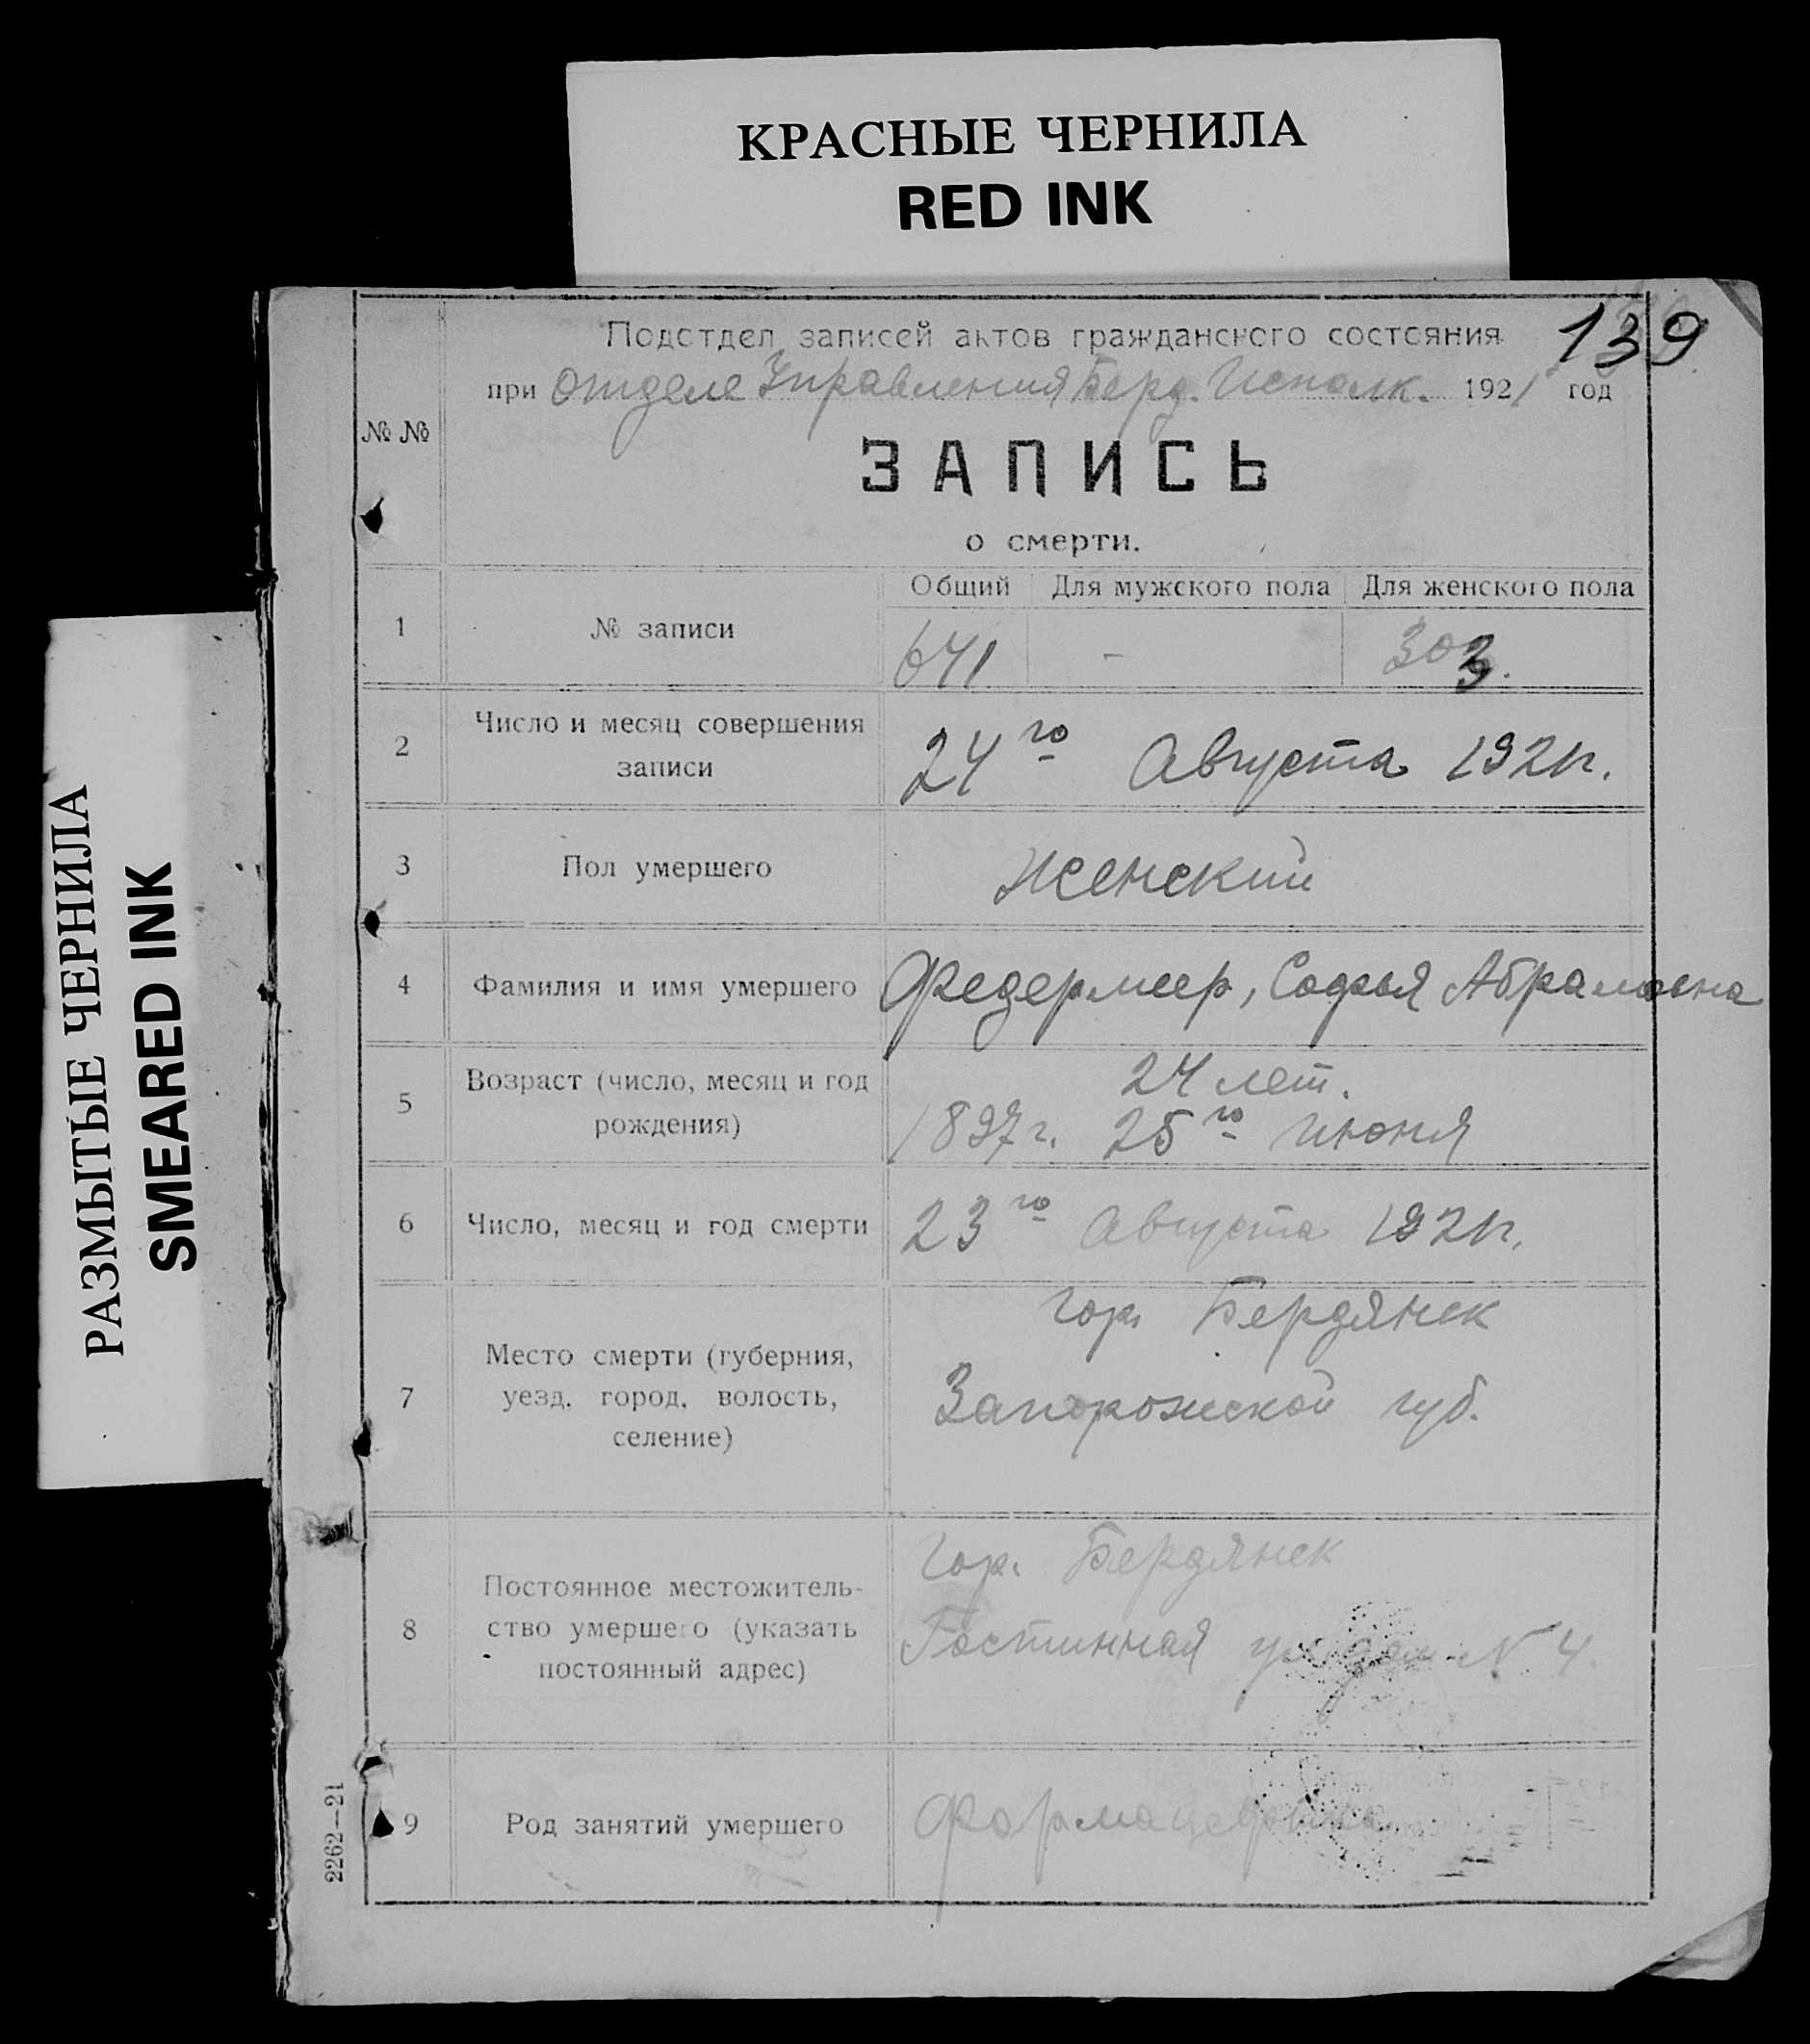 КРАСНЫЕ ЧЕРНИЛА
RED INK
РАЗМЫТЫЕ ЧЕРНИЛА
SMEARED INK
139
Подотдел записей актов гражданского состояния
при Отделе Управления Берд. Исполк. 1921 год
№ №
ЗАПИСЬ
о смерти.
Общий Для мужского пола Для женского пола
1 № записи 641 - 303.
2 Число и месяц совершения
записи
24го Августа 1921г.
3 Пол умершего Женский
4 Фамилия и имя умершего Федермеер, Софья Абрамовна
5 Возраст (число, месяц и год
рождения)
24 лет.
1897г. 25го Июня
6 Число, месяц и год смерти 23го Августа 1921г.
7 Место смерти (губерния,
уезд, город, волость,
селение)
гор. Бердянск
Запорожской губ.
8 Постоянное местожитель-
ство умершего (указать
постоянный адрес)
Гор. Бердянск
Гостинная ул дом N 4.
9 Род занятий умершего
2262—21